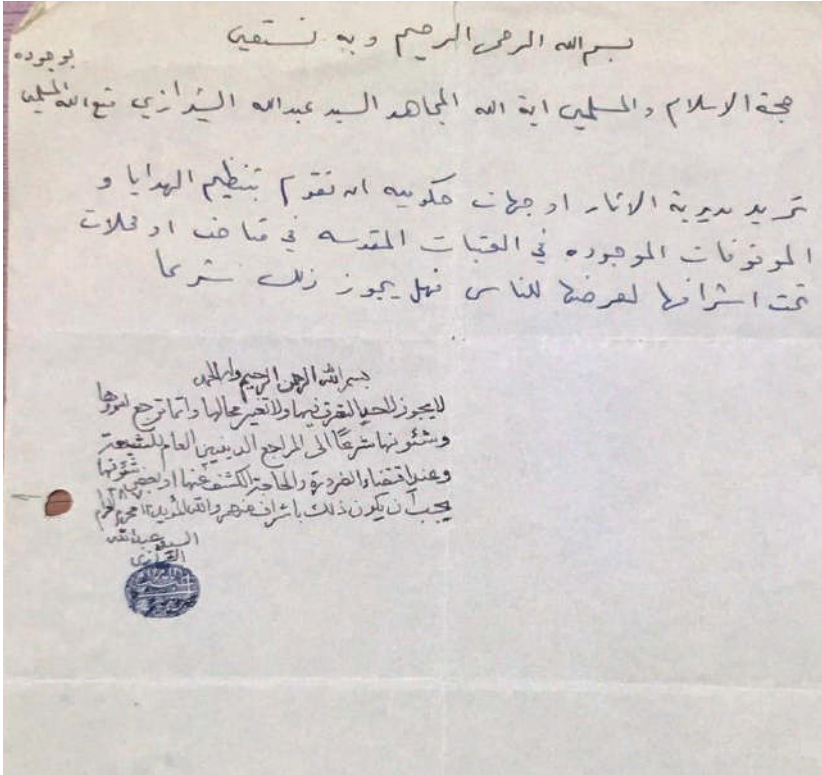 بسم الله الرحمن الرحيم و به نستعين
حجة الاسلام و المسلمين اية الله المجاهد السيد عبدالله الشيرازي متع الله المسلمين
بوجوده
تريد مديرية الاثار او جهات حكوميه ان تقوم بتنظيم الهدايا و
الموقوفات الموجوده في العتبات المقدسه في متاحف او محلات
تحت اشرافها لعرضها للناس فهل يجوز ذلك شرعا
بسم الله الرحمن الرحيم وله الحمد
لا يجوز لاحد التصرف فيها ولا تغير محالها وانما ترجع امورها
وشئونها شرعاً الى المراجع الدينيين العام للشيعة
وعند اقتضاء الضرورة والحاجة الكشف عنها او لبعض شئونها
يجب أن يكون ذلك باشراف منهم والله المؤيد ١٢ محرم الحرام
السيد عبدالله
الشيرازي